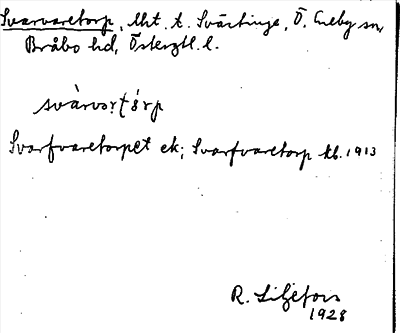 Svarvaretorp, lht. t. Svärtinge, Ö. Eneby sn,
Bråbo hd, Östergtl. l.
svàrvọrtǫ́rp
Svarfvaretorpet ek; Svarfvaretorp kb. 1913
R. Liljefors
1928